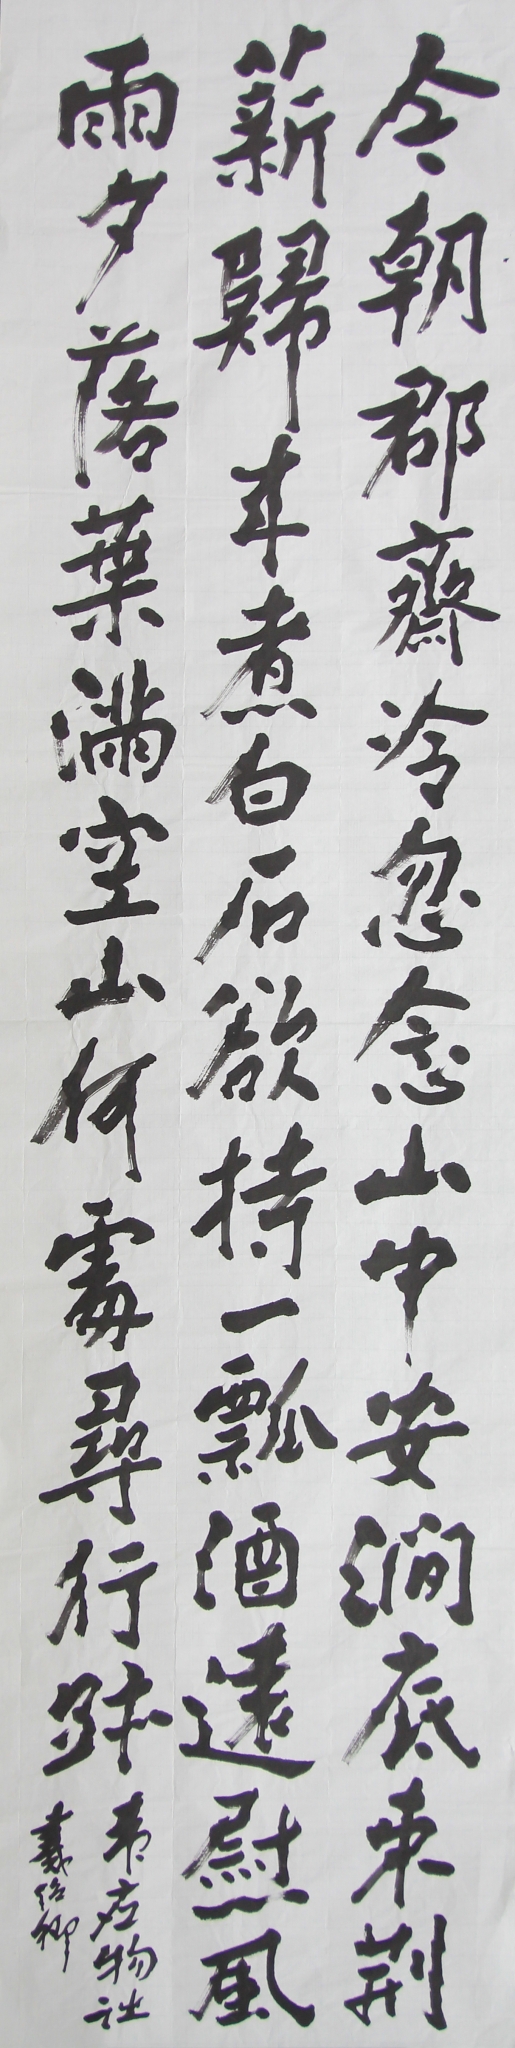 今朝郡齋冷忽念山中安澗底束荊
薪歸来煮白石欲持一瓢酒遠慰風
雨夕落葉滿空山何處尋行跡
韋应物詩